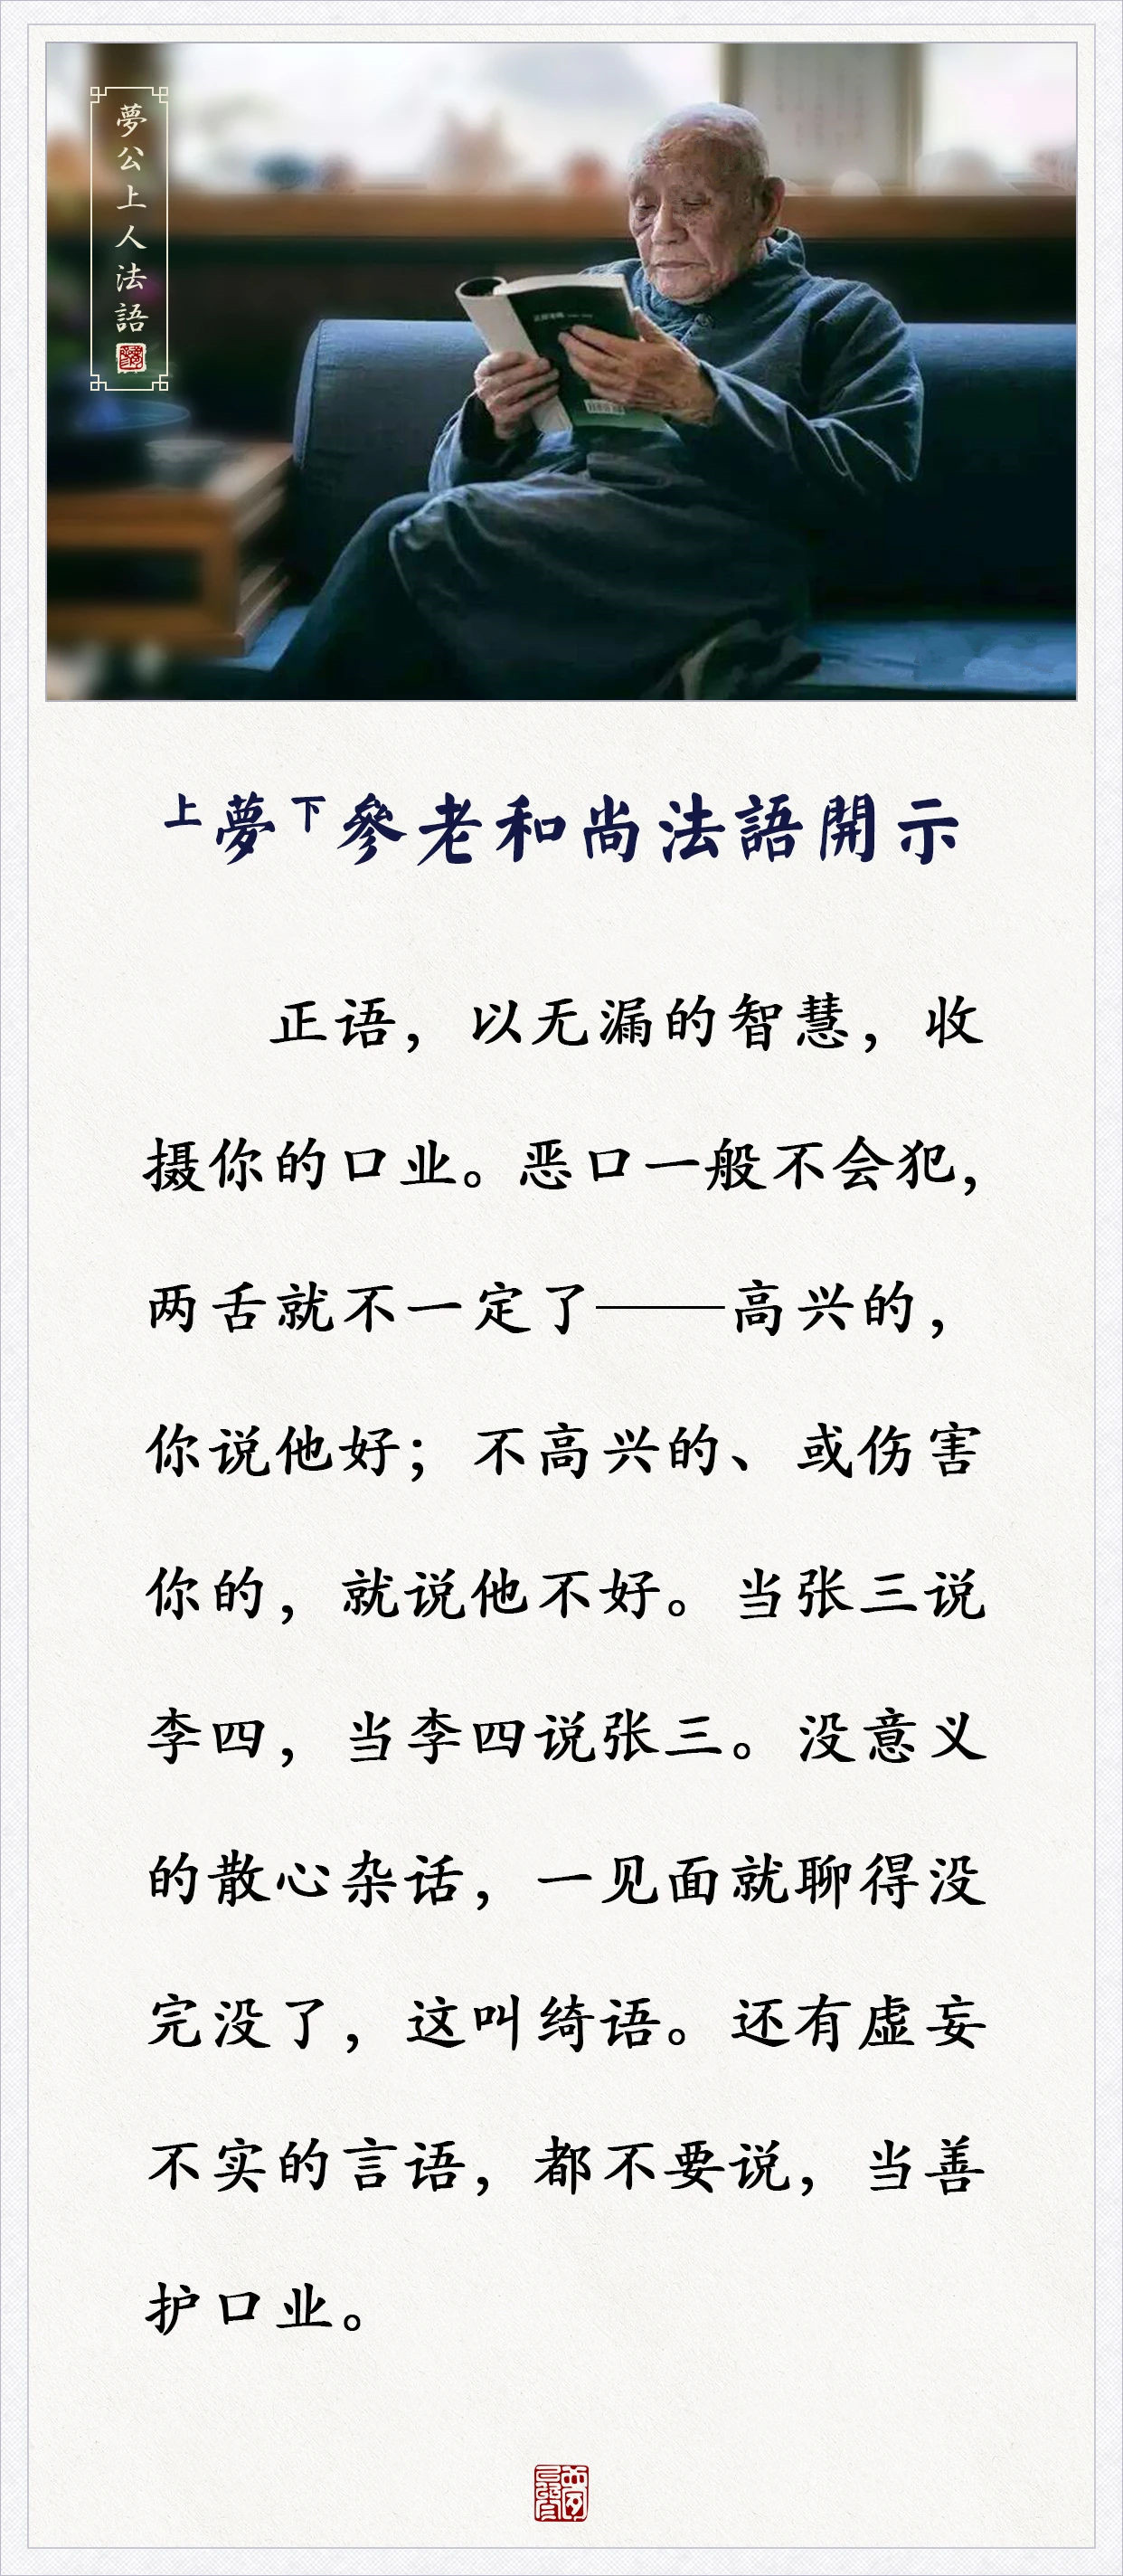 夢公上人法語
上夢下參老和尚法語開示
正语，以无漏的智慧，收
摄你的口业。恶口一般不会犯，
两舌就不一定了——高兴的，
你说他好；不高兴的、或伤害
你的，就说他不好。当张三说
李四，当李四说张三。没意义
的散心杂话，一见面就聊得没
完没了，这叫绮语。还有虚妄
不实的言语，都不要说，当善
护口业。